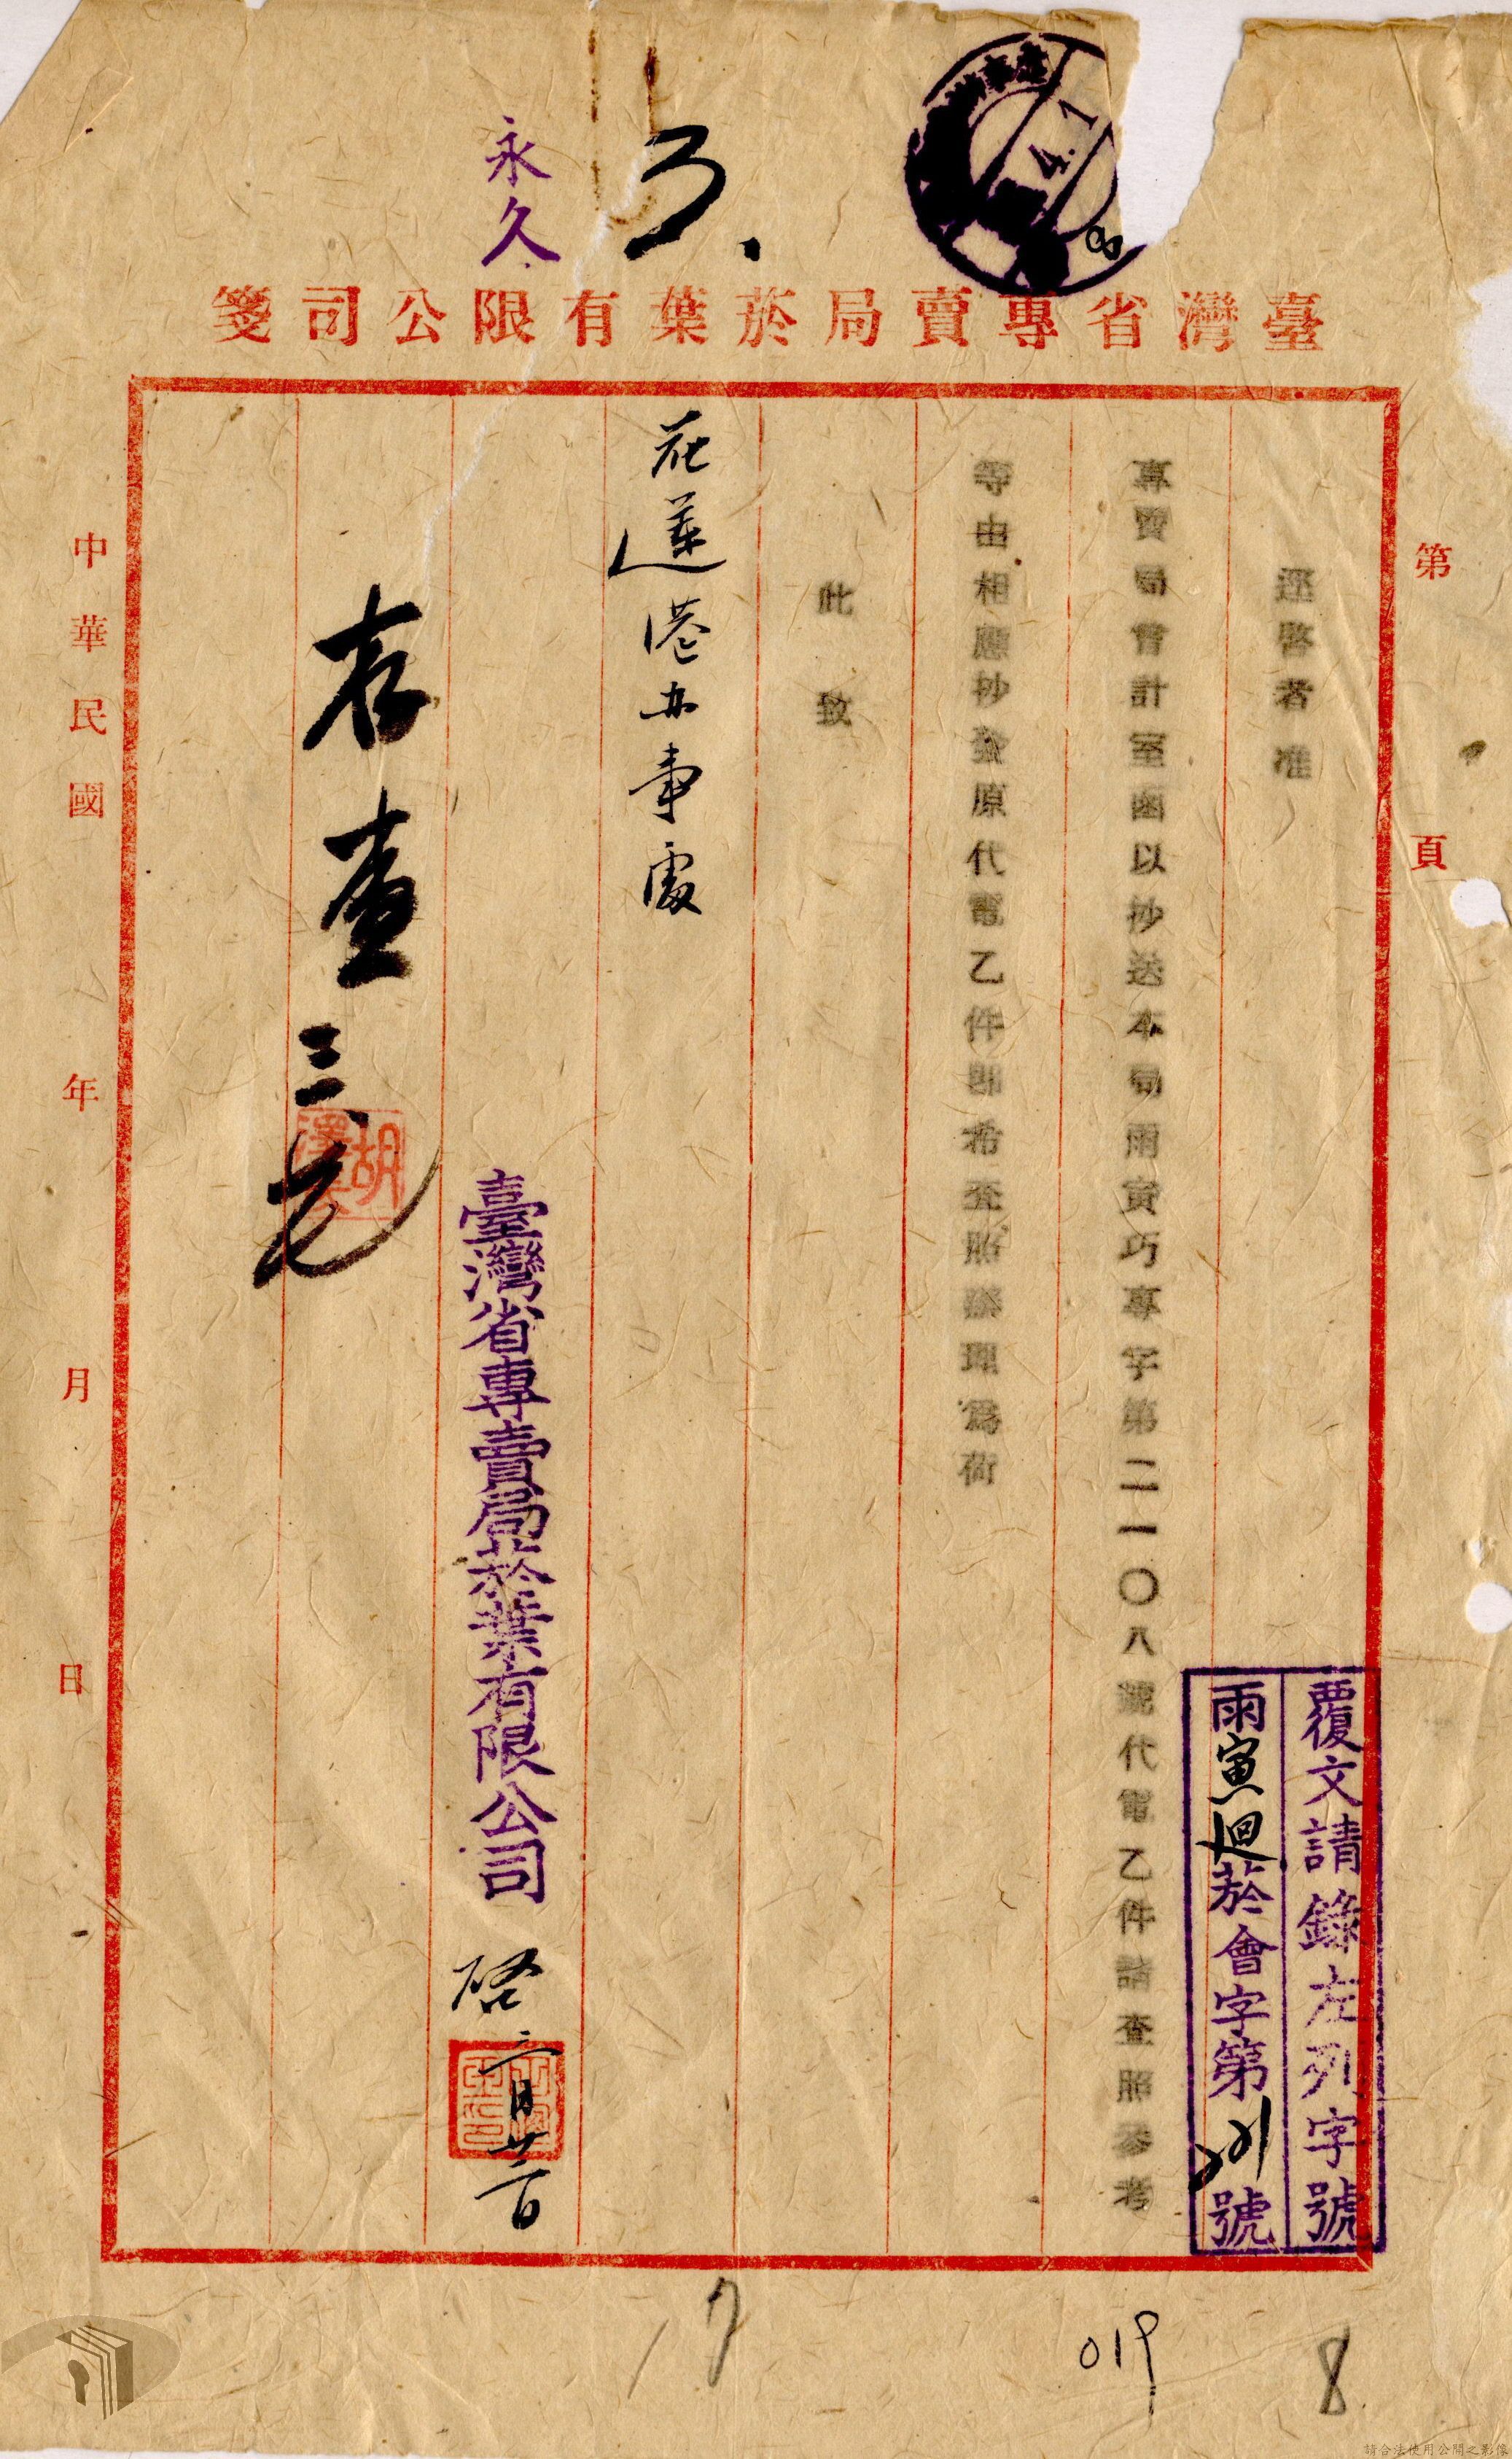 永久
4.1
臺灣省專賣局菸葉有限公司箋
第 頁
覆文請錄左列字號
雨寅迴菸會字第 號
逕啓者准
專賣局會計室函以抄送本局雨寅巧專字第二一〇八號代電乙件請查照參考
等由相應抄發原代電乙件即希查照辦理爲荷
此致
花蓮港办事處
臺灣省專賣局菸葉有限公司 啓 三月廿六日
存查
胡
中華民國 年 月 日
17
019
8
請合法使用公開之影像